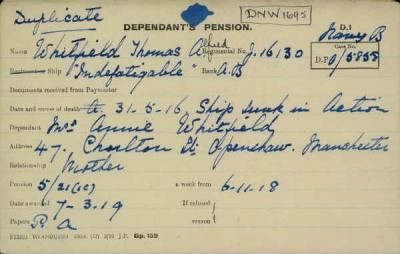 Duplicate
DNW1695
DEPENDANT'S PENSION.
D.1
Navy B
Name Whitfield Thomas Alfred Regimental No J.16130
Case No.
D.P. 0/5858
Regiment or Ship "Indefatigable" Rank A.B
Documents received from Paymaster
Date and cause of death A. 31-5-16, Ship sunk in Action
Dependant Mrs Annie Whitfield
Address 47. Chorlton St Openshaw. Manchester
Relationship Mother
Pension 5/21(1c) a week from 6-11-18
Date awarded 7-3-19 If refused
Papers P. A reason
Gp. 159